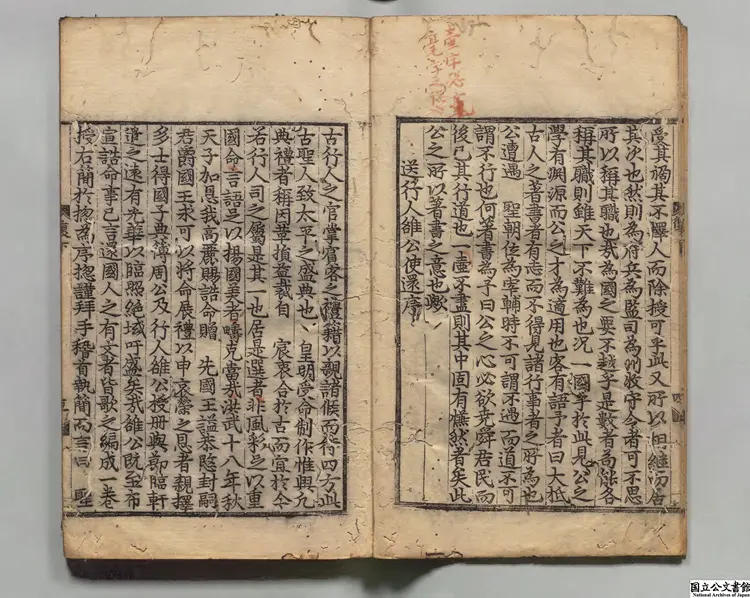 受其禍其不曠人而除授可乎此又所以
其次也然則為府兵為監司為州牧守令者可不思
所以稱其職也哉為國之要不越乎是數者為能各
稱其職則雖天下不難為也况一國乎於此見公之
學有淵源而公之才為適用也客有語予者曰大抵
古人之著書者有志而不得見諸行事者之所為也
公遭遇 聖朝位為宰輔時不可謂不遇而道不可
謂不行也何著書為予曰公之心必欲堯舜君民而
後已其行道也一毫不盡則其中固有慊然者矣此
公之所以著書之意也歟
送行人雒公使還序
古行人之官掌賓客之禮籍以親諸侯而行四方此
古聖人致太平之盛典也 皇明受命制作惟興凡
典禮者稱因革損益裁自 宸衷合於古而宜於今
若行人司之屬是其一也居是選者非風彩足以重
國命言語足以揚國美者疇克當哉洪武十八年秋
天子加恩我高麗賜誥命贈 先國王謚恭愍封嗣
君爵國王求可以將命展禮以申哀榮之恩者親擇
多士得國子典簿周公及行人雒公授冊與節臨軒
遣之遠有光華以臨照絶域吁盛矣哉雒公旣至布
宣誥命事已言還國人之有文者皆歌之編成一卷
授石簡於 為序 謹拜手稽首執簡而言曰 聖
国立公文書館
National Archives of Japan